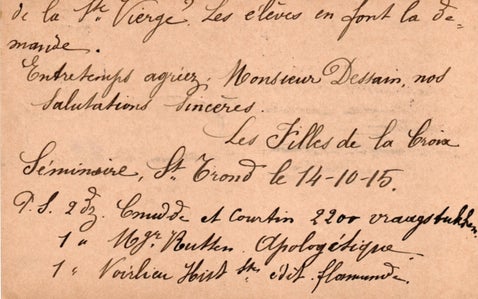 de la Ste Vierge. Les élèves en font la de=
mande.
Entretemps agréez, Monsieur Dessain, nos
salutations sincères.
Les Filles de la Croix
Séminaire, St Trond le 14-10-15.
P.S. 2 dz. Cnudde et Courtin 2200 vraagstukken
1 " Mgr Rutten. Apologétique.
1 " Voirlieu Hist. Ste édit. flamande